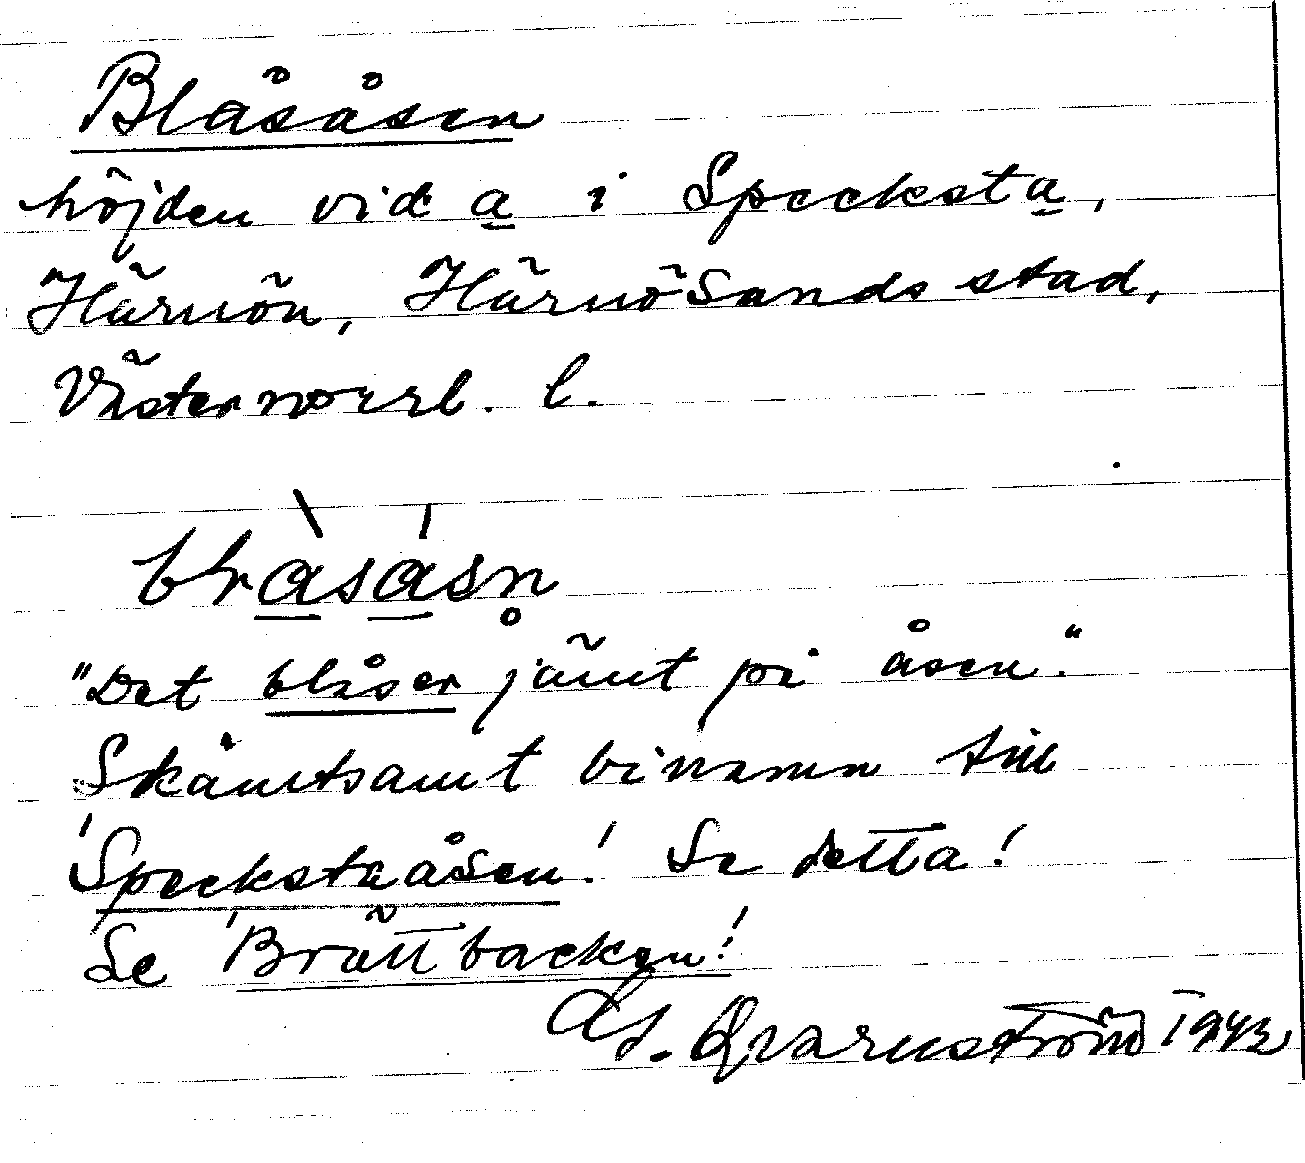 Blåsåsen
höjden vid a i Specksta,
Härnön, Härnösands stad,
Västernorrl. l.
blràsásn
"Det blåser jämt på åsen."
Skämtsamt binamn till
'Speckstaåsen! Se detta!
Se 'Brattbacken!
Qvarnström 1943